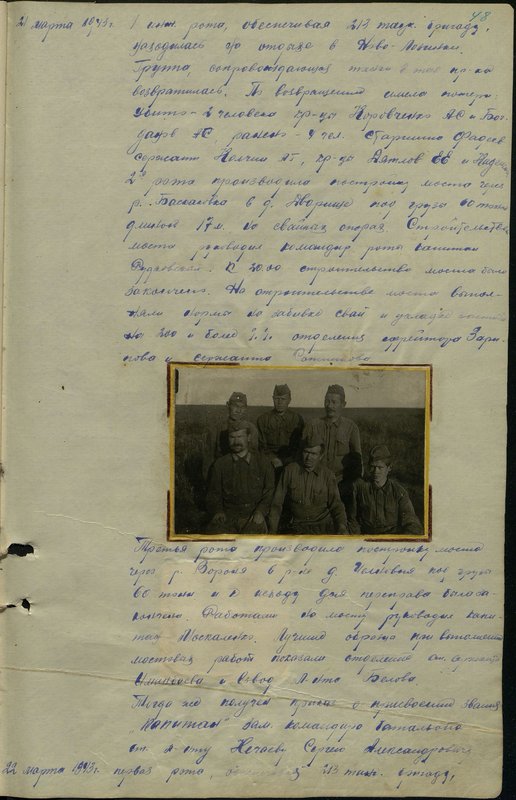 48
21 марта 1943г. 1 инж. рота, обеспечивая 213 танк. бригаду,
находилась на отдыхе в Ново-
Группа, сопровождающая танки в тыл пр-ка
возвратилась. По возвращении имела потери:
убито - 2 человека кр-цы Коровченко АС и
АС ранено - 4 чел. старшина Фадеев
сержант АГ, кр-цы Дятлов ЕЕ и
2ая рота производила постройку моста через
р. в д. Дворище под грузы 60 тонн
длиной 17 м. на свайных опорах. Строительством
моста руководил командир роты капитан
К 20.00 строительство моста было
закончено. На строительстве моста выпол-
няли нормы по забивке свай и укладке
на 200 и более % % отделения ефрейтора Зари-
пова и сержанта
Третья рота производила постройку моста
через р. Вороня в р-не д. под грузы
60 тонн и к исходу дня переправа была за-
кончена. Работами на мосту руководил капи-
тан Москаленко. Лучшие образцы при выполнении
мостовых работ показали отделение ст. сержанта
и взвод л-та Белова
Тогда же получен приказ о присвоении звания
"Капитан" зам. командира батальона
ст. л-ту Нечаеву Сергею Александровичу
22 марта 1943г. первая рота, 213 танк. бригаду,